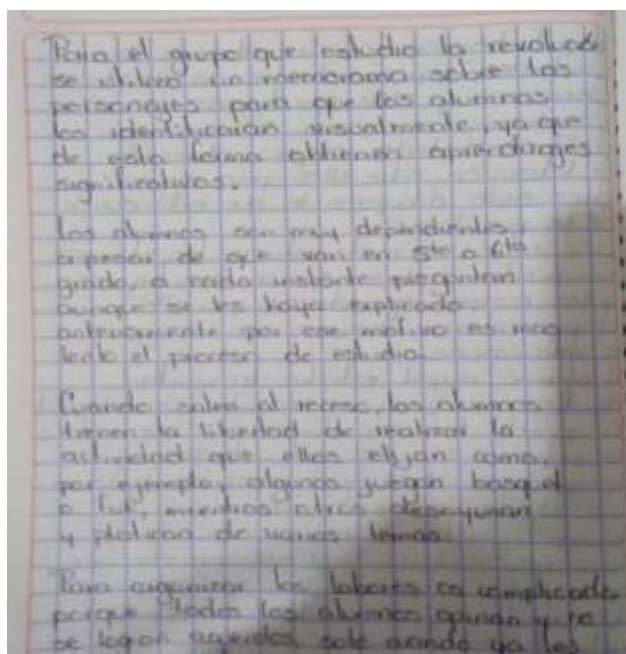 Para el grupo que estudio la revolución
se utilizo un memorama sobre los
personajes para que los alumnos
los identificaran visualmente, ya que
de esta forma obtienen aprendizajes
significativos.
Los alumnos son muy dependientes
a pesar de que van en 5to o 6to
grado, a cada instante preguntan
aunque se les haya explicado
anteriormente por ese motivo es mas
lento el proceso de estudio.
Cuando salen al receso, los alumnos
tienen la libertad de realizar la
actividad que ellos elijan como,
por ejemplo, algunos juegan basquet
o fut, mientras otros desayunan
y platican de varios temas
Para organizar las labores es complicado
porque todos los alumnos opinan y no
se logran acuerdos solo cuando ya les